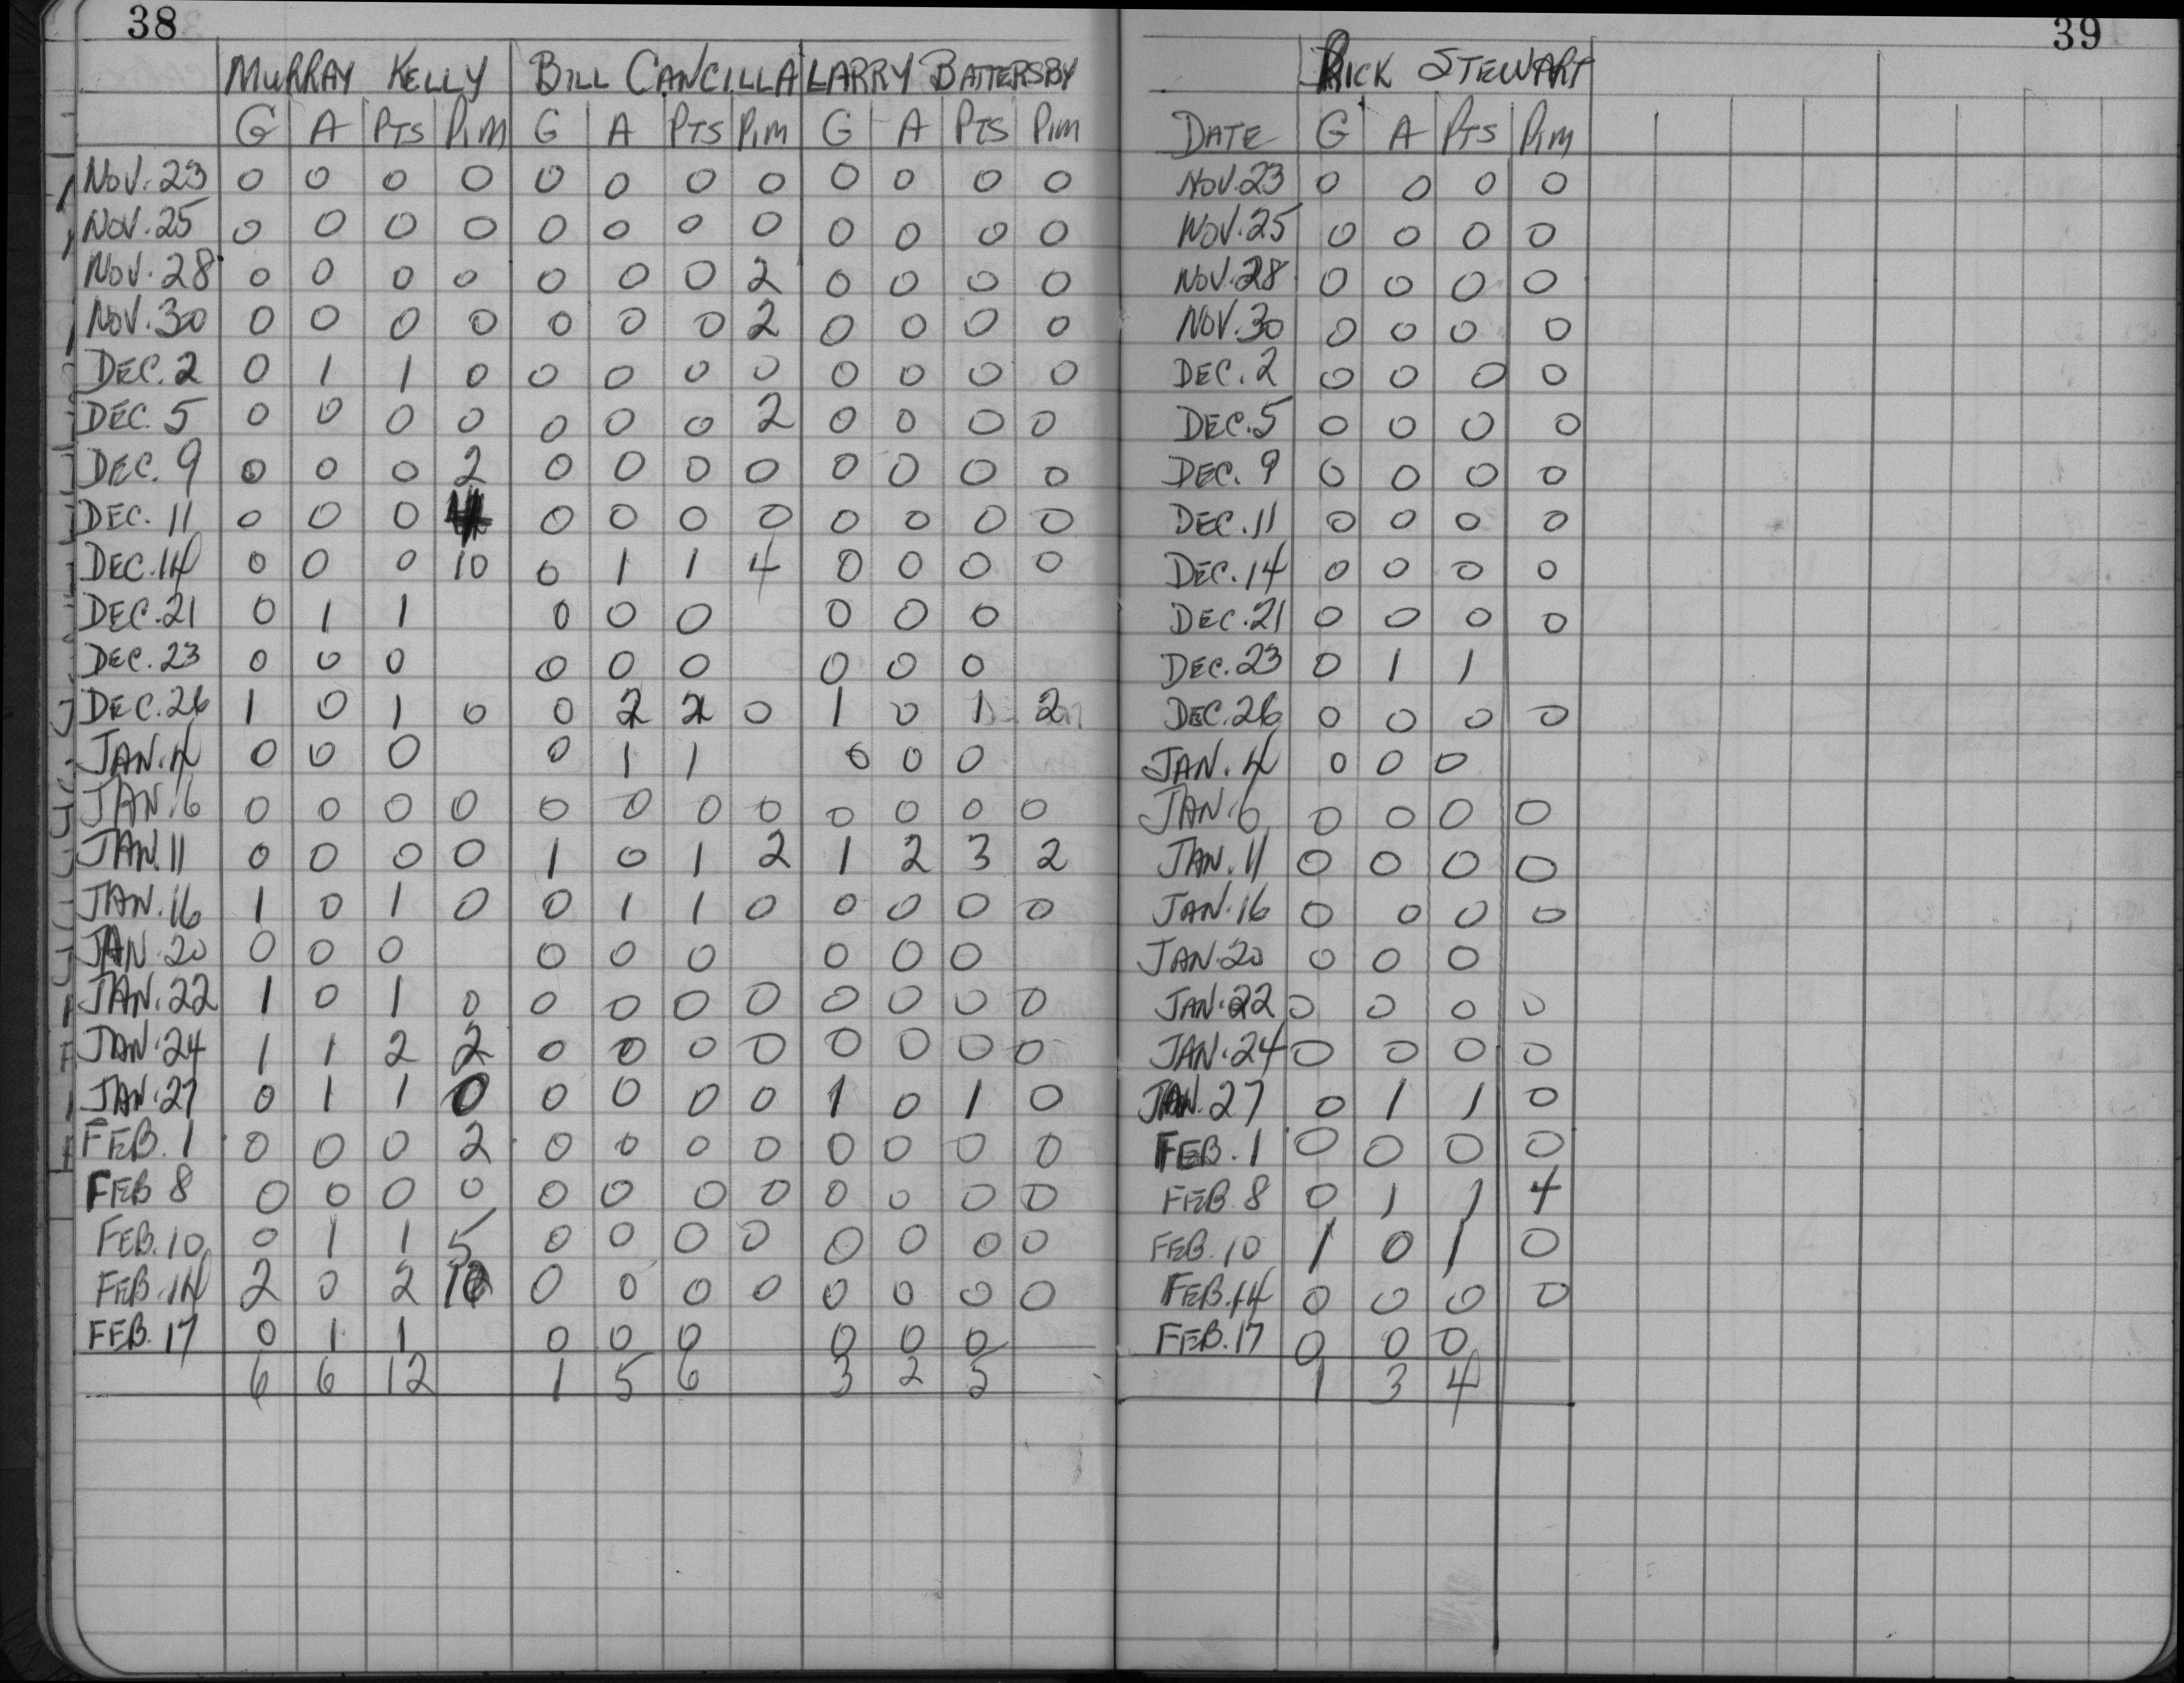 38
MURRAY KELLY BILL CANCILLA LARRY BATTERSBY
G A PTS PIM G A PTS PIM G A PTS PIM
NOV. 23 0 0 0 0 0 0 0 0 0 0 0 0
NOV. 25 0 0 0 0 0 0 0 0 0 0 0 0
NOV. 28 0 0 0 0 0 0 0 2 0 0 0 0
NOV. 30 0 0 0 0 0 0 0 2 0 0 0 0
DEC. 2 0 1 1 0 0 0 0 0 0 0 0 0
DEC. 5 0 0 0 0 0 0 0 2 0 0 0 0
DEC. 9 0 0 0 2 0 0 0 0 0 0 0 0
DEC. 11 0 0 0 0 0 0 0 0 0 0 0
DEC. 14 0 0 0 10 0 1 1 4 0 0 0 0
DEC. 21 0 1 1 0 0 0 0 0 0
DEC. 23 0 0 0 0 0 0 0 0 0
DEC. 26 1 0 1 0 0 2 2 0 1 0 1 2
JAN. 4 0 0 0 0 1 1 0 0 0
JAN. 6 0 0 0 0 0 0 0 0 0 0 0 0
JAN. 11 0 0 0 0 1 0 1 2 1 2 3 2
JAN. 16 1 0 1 0 0 1 1 0 0 0 0 0
JAN. 20 0 0 0 0 0 0 0 0 0
JAN. 22 1 0 1 0 0 0 0 0 0 0 0 0
JAN. 24 1 1 2 2 0 0 0 0 0 0 0 0
JAN. 27 0 1 1 0 0 0 0 0 1 0 1 0
FEB. 1 0 0 0 2 0 0 0 0 0 0 0 0
FEB 8 0 0 0 0 0 0 0 0 0 0 0 0
FEB. 10 0 1 1 5 0 0 0 0 0 0 0 0
FEB. 14 2 0 2 0 0 0 0 0 0 0 0
FEB. 17 0 1 1 0 0 0 0 0 0
6 6 12 1 5 6 3 2 5
39
RICK STEWART
DATE G A PTS PIM
NOV. 23 0 0 0 0
NOV. 25 0 0 0 0
NOV. 28 0 0 0 0
NOV. 30 0 0 0 0
DEC. 2 0 0 0 0
DEC. 5 0 0 0 0
DEC. 9 0 0 0 0
DEC. 11 0 0 0 0
DEC. 14 0 0 0 0
DEC. 21 0 0 0 0
DEC. 23 0 1 1
DEC. 26 0 0 0 0
JAN. 4 0 0 0
JAN. 6 0 0 0 0
JAN. 11 0 0 0 0
JAN. 16 0 0 0 0
JAN. 20 0 0 0
JAN. 22 0 0 0 0
JAN. 24 0 0 0 0
JAN. 27 0 1 1 0
FEB. 1 0 0 0 0
FEB. 8 0 1 1 4
FEB. 10 1 0 1 0
FEB. 14 0 0 0 0
FEB. 17 0 0 0
1 3 4